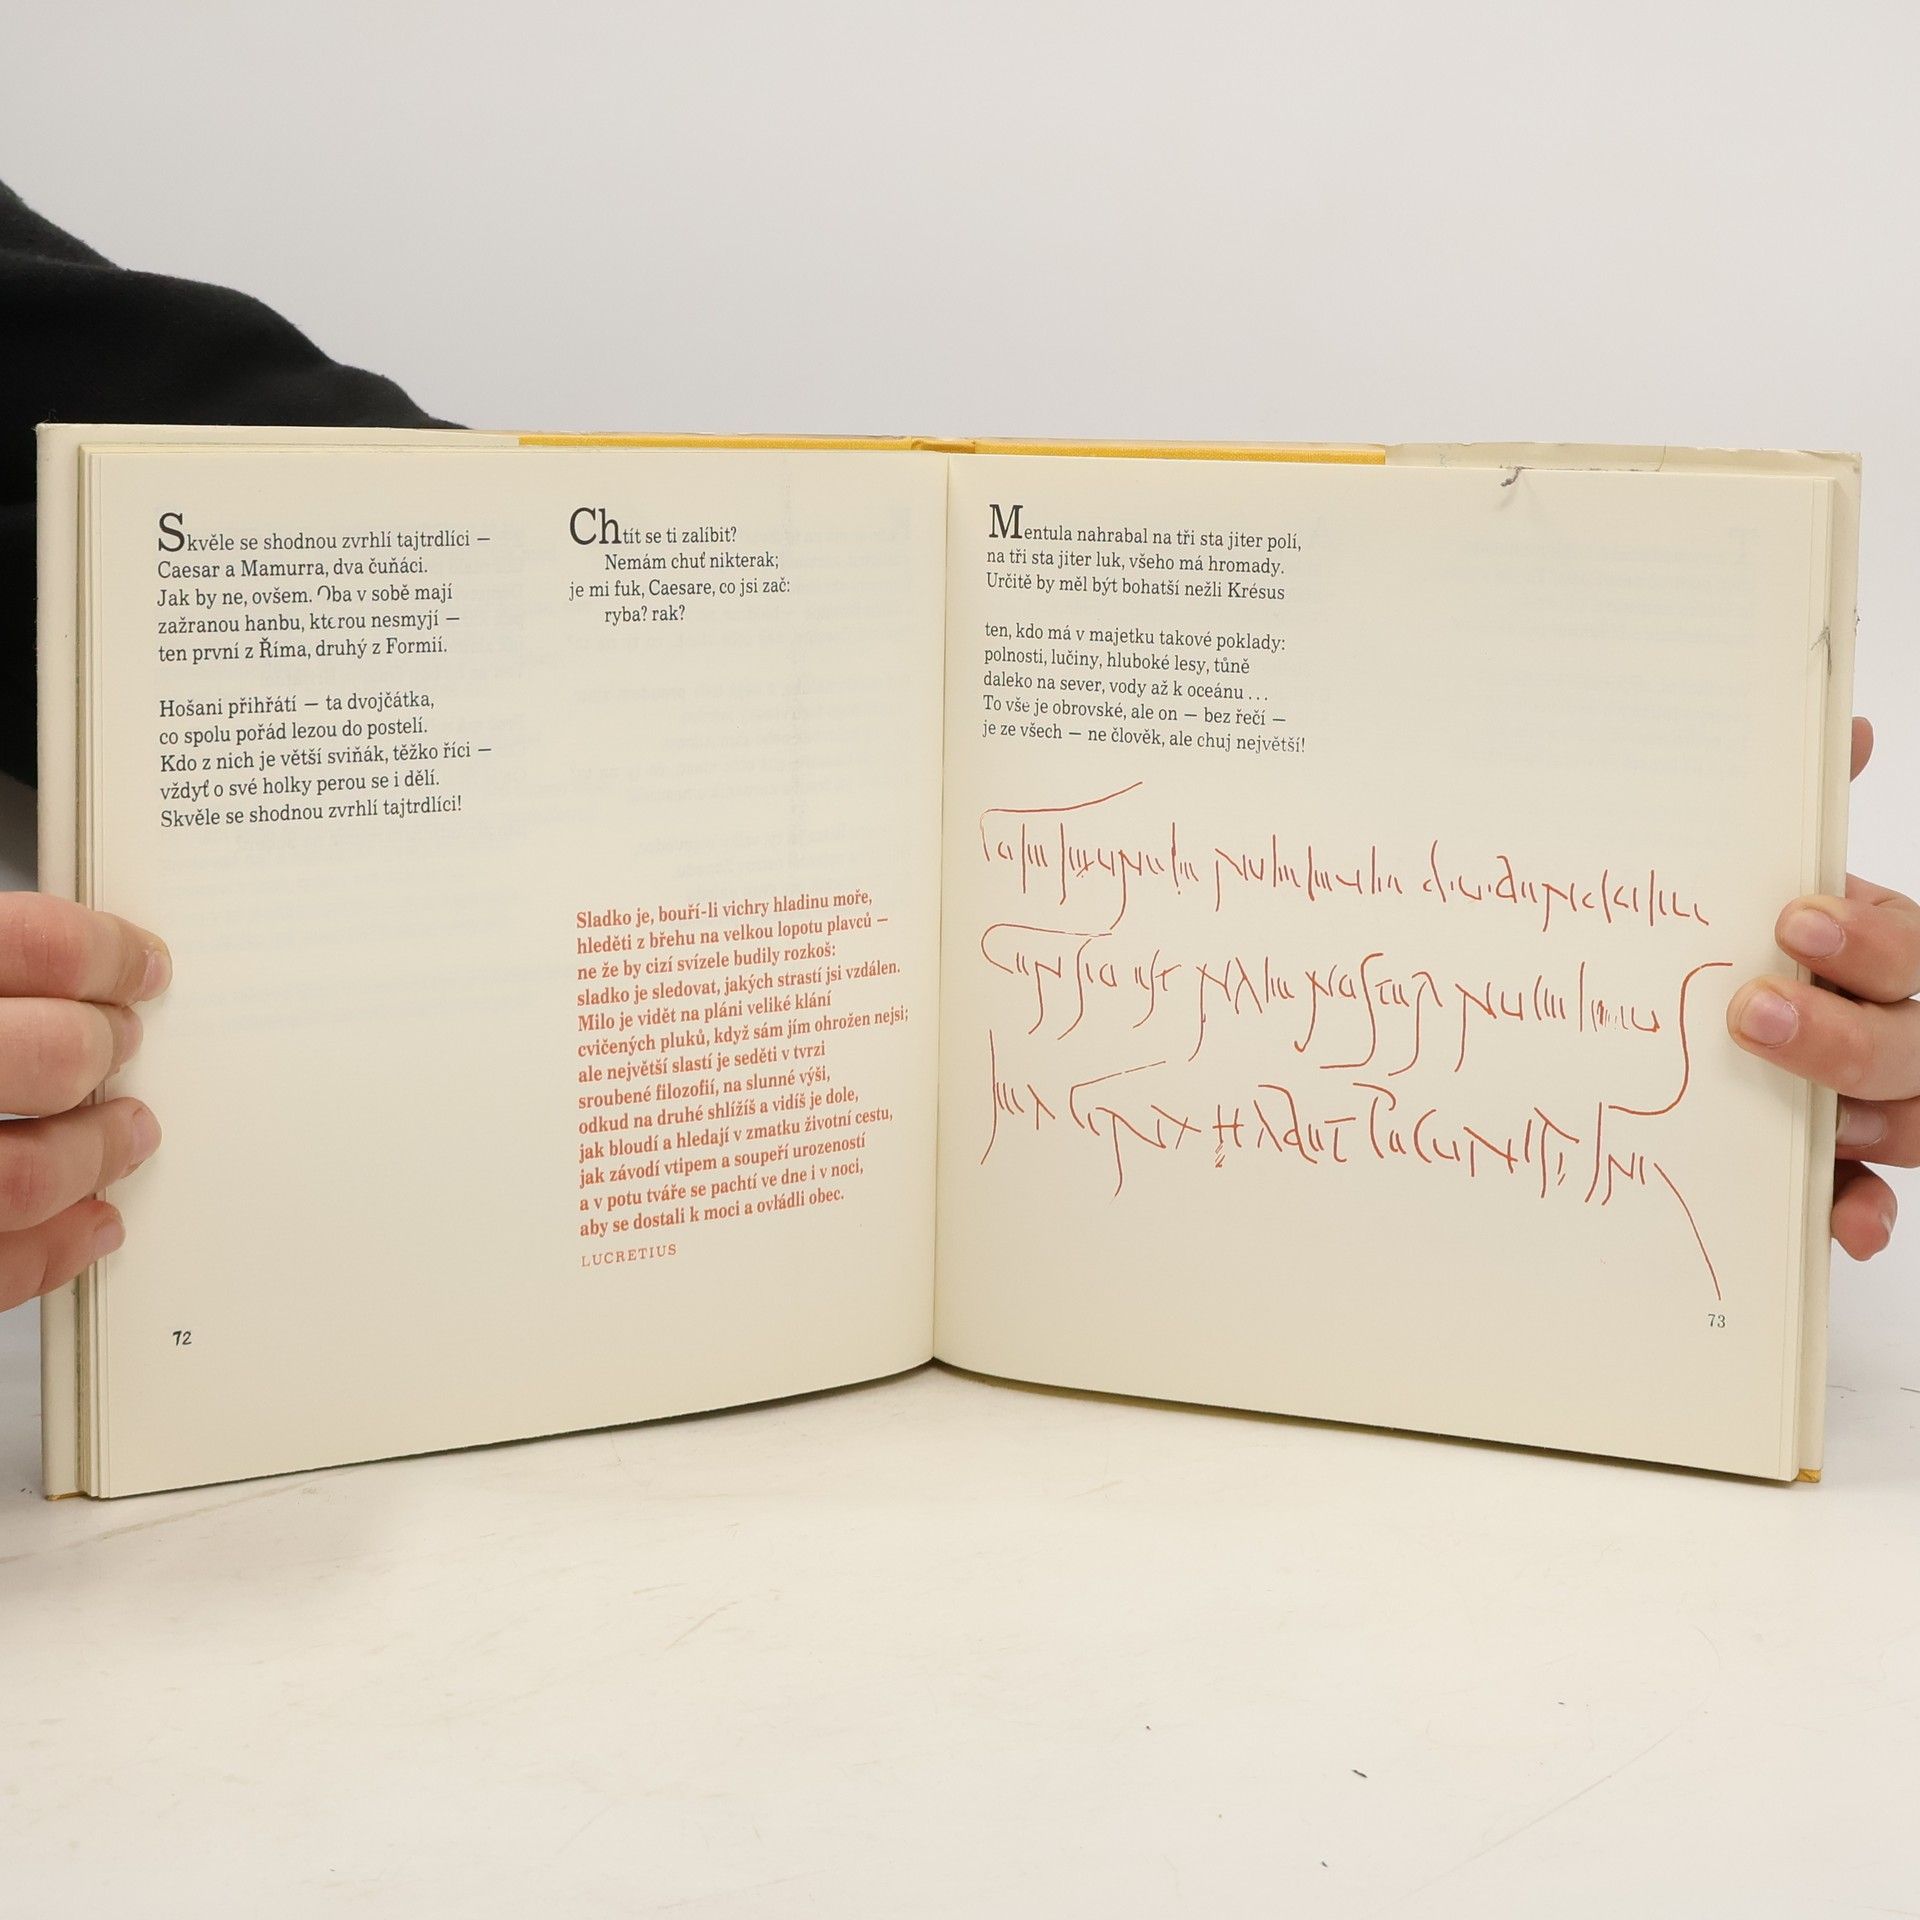 Skvěle se shodnou zvrhlí tajtrdlíci —
Caesar a Mamurra, dva čuňáci.
Jak by ne, ovšem. Oba v sobě mají
zažranou hanbu, kterou nesmyjí —
ten první z Říma, druhý z Formií.
Hošani přihřátí — ta dvojčátka,
co spolu pořád lezou do postelí.
Kdo z nich je větší sviňák, těžko říci —
vždyť o své holky perou se i dělí.
Skvěle se shodnou zvrhlí tajtrdlíci!
Chtít se ti zalíbit?
Nemám chuť nikterak;
je mi fuk, Caesare, co jsi zač:
ryba? rak?
Sladko je, bouří-li vichry hladinu moře,
hleděti z břehu na velkou lopotu plavců —
ne že by cizí svízele budily rozkoš:
sladko je sledovat, jakých strastí jsi vzdálen.
Milo je vidět na pláni veliké klání
cvičených pluků, když sám jím ohrožen nejsi;
ale největší slastí je seděti v tvrzi
sroubené filozofií, na slunné výši,
odkud na druhé shlížíš a vidíš je dole,
jak bloudí a hledají v zmatku životní cestu,
jak závodí vtipem a soupeří urozeností
a v potu tváře se pachtí ve dne i v noci,
aby se dostali k moci a ovládli obec.
LUCRETIUS
72
Mentula nahrabal na tři sta jiter polí,
na tři sta jiter luk, všeho má hromady.
Určitě by měl být bohatší nežli Krésus
ten, kdo má v majetku takové poklady:
polnosti, lučiny, hluboké lesy, tůně
daleko na sever, vody až k oceánu . . .
To vše je obrovské, ale on — bez řečí —
je ze všech — ne člověk, ale chuj největší!
73